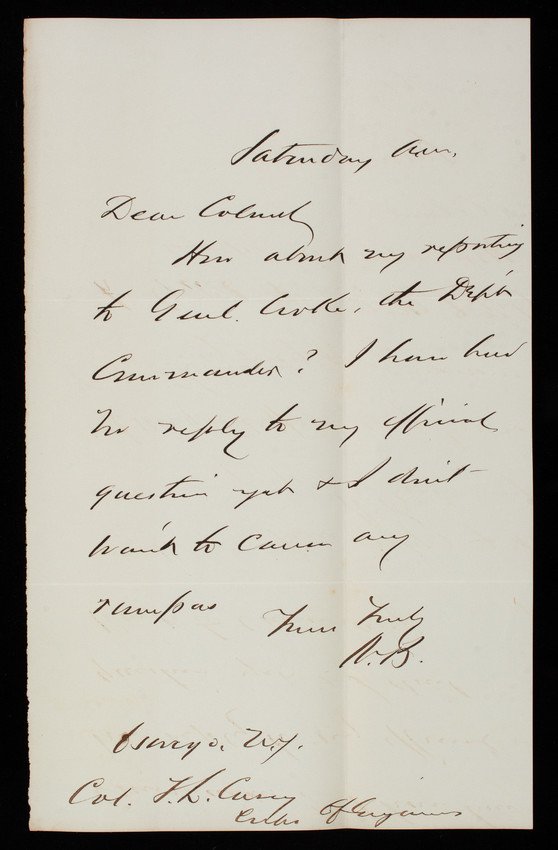 Saturday A.M.
Dear Colonel
How about my reporting
to Genl. Crooke, the Dep't
Commander? I have had
no reply to my official
question yet & I don't
want to cause any
rumpus
Yours Truly
Oswego. N.Y.
Col. T. L. Casey
Corps of Engineers